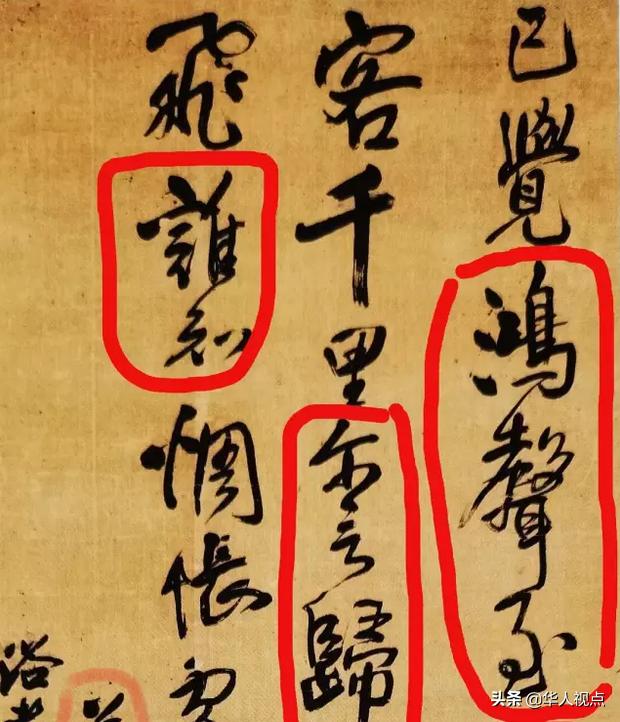 已覺鴻聲
客千里尔言歸
飛誰知惆悵
头条 @华人视点